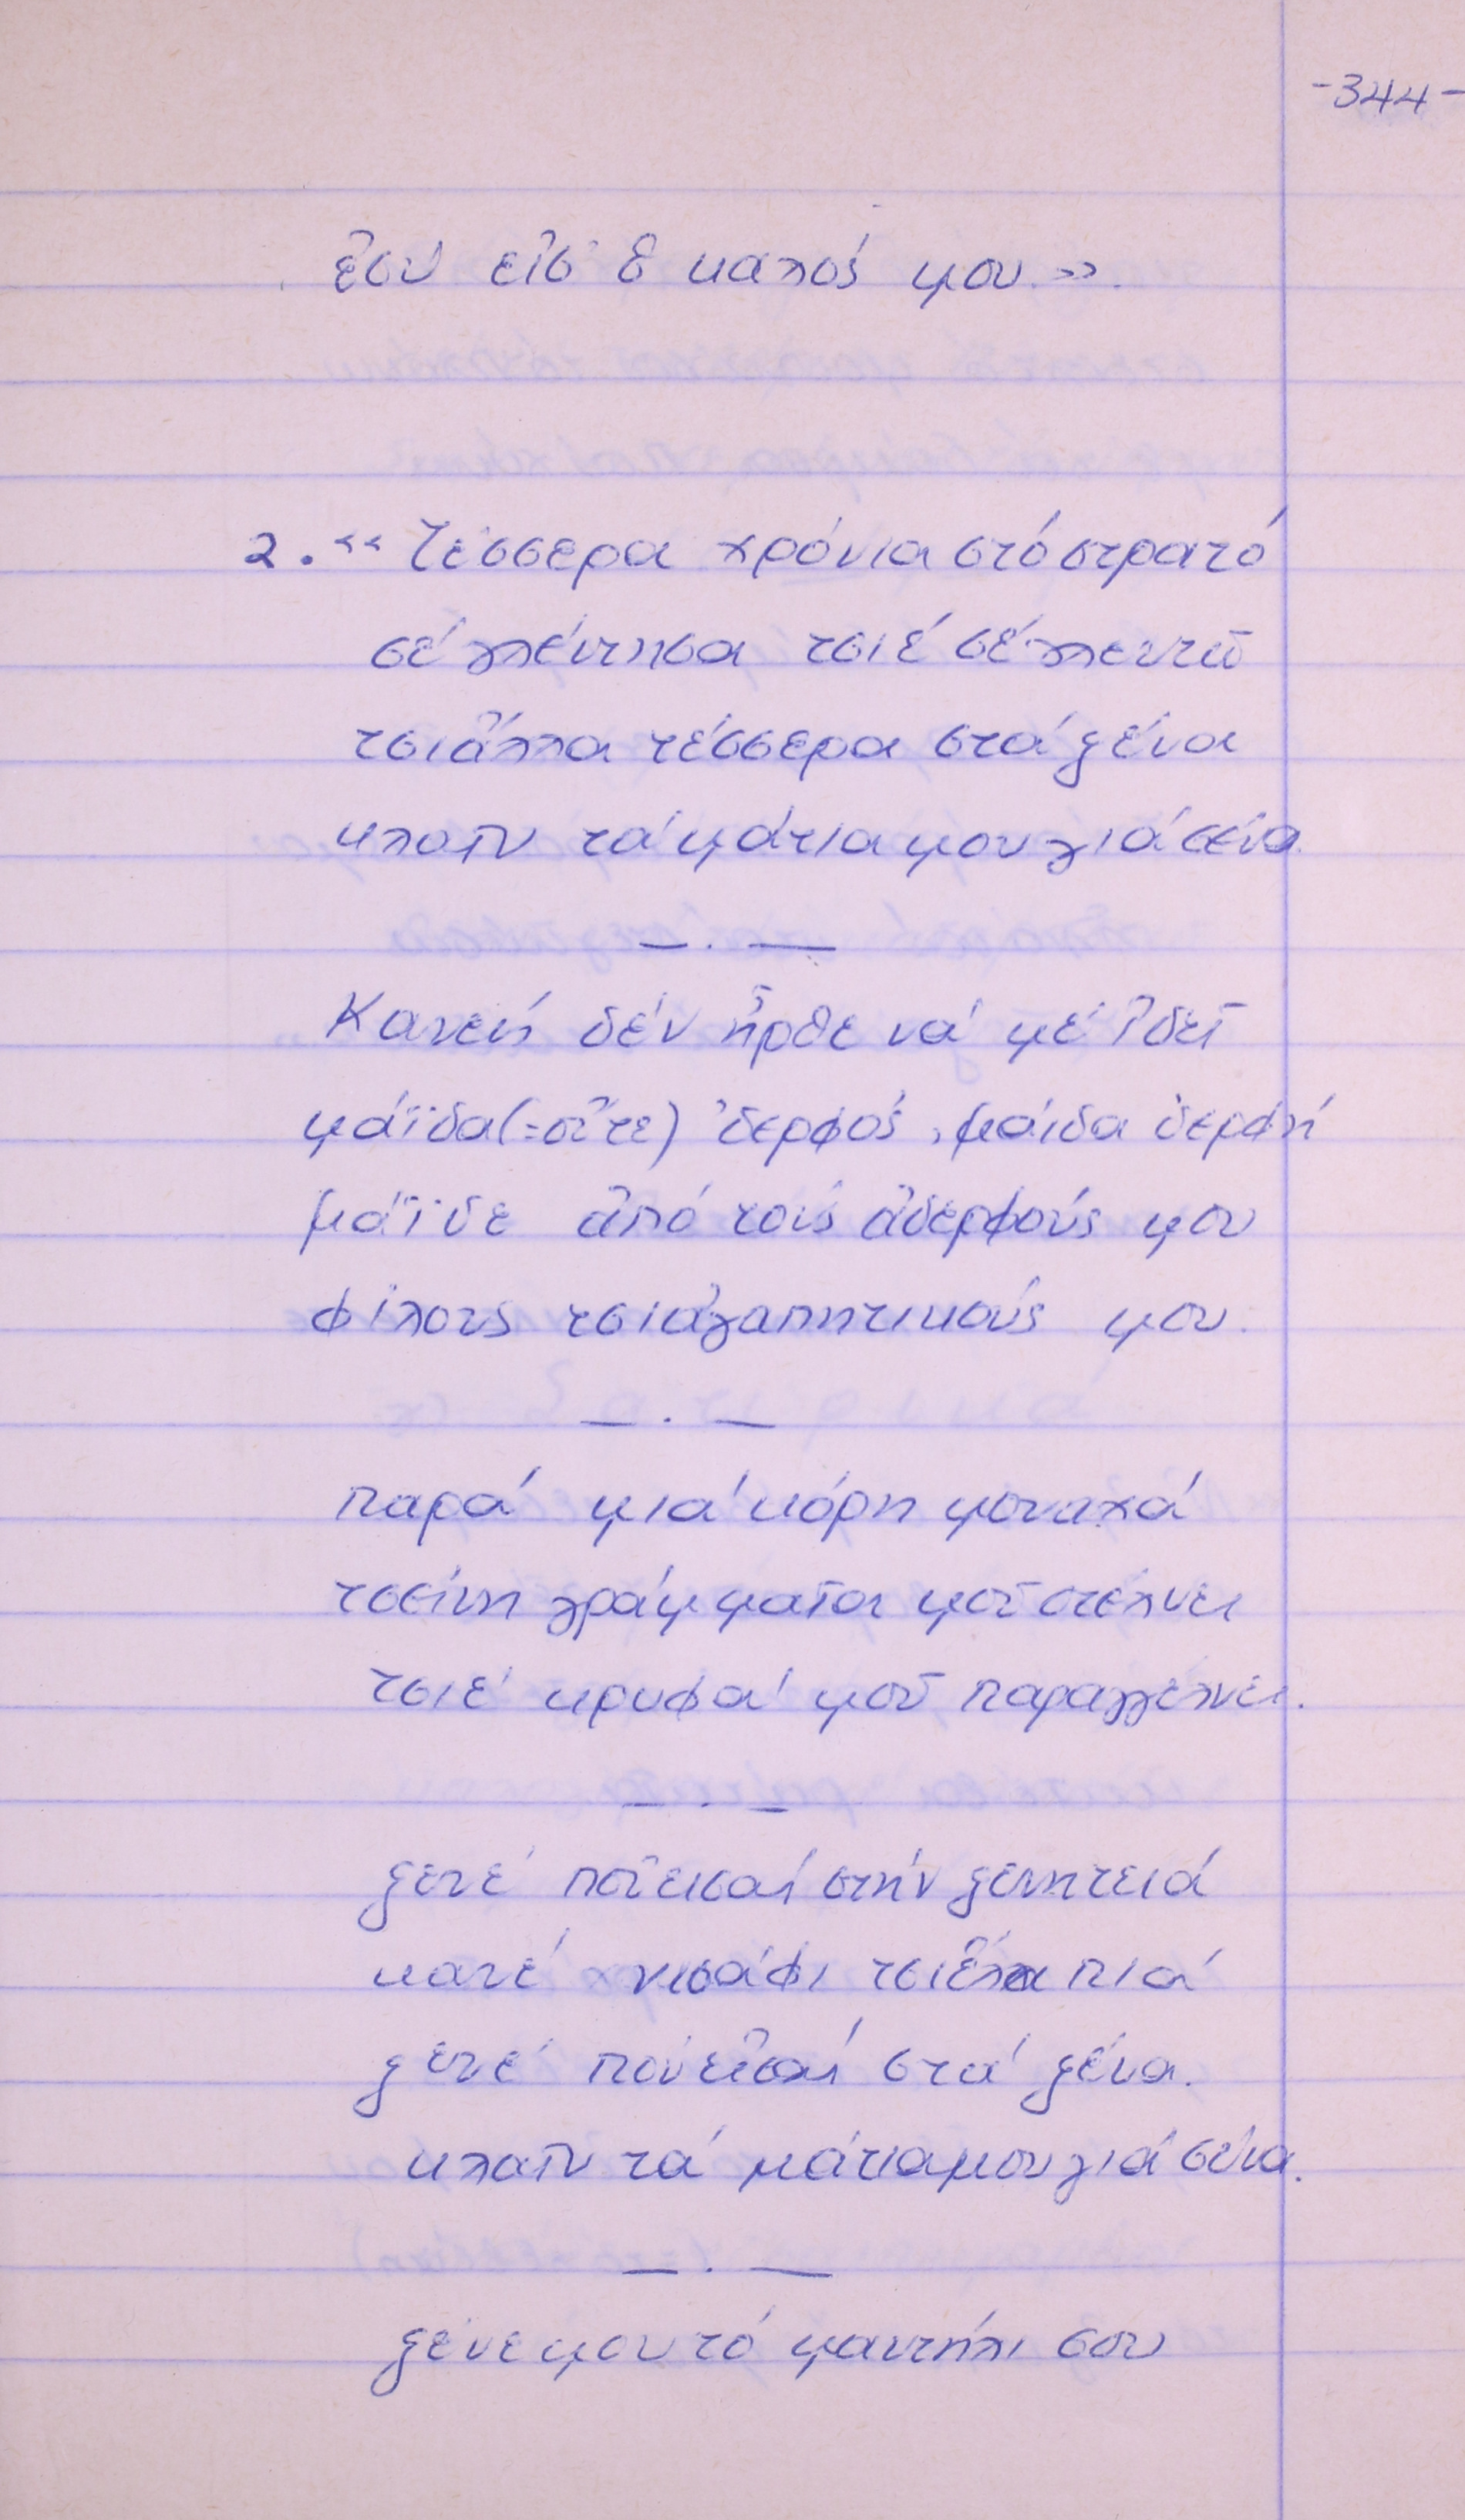 -344-
ἐσύ εἶσ' ὁ καλός μου.»
2. «Τέσσερα χρόνια στό στρατό
σέ γλέντησα τσιέ σέ γλεντῶ
τσι ἄλλα τέσσερα στά ξένα
κλαῖν τά μάτια μου γιά σένα.
— . —
Κανείς δέν ἦρθε νά μέ ἰδεῖ
μάϊδα (=οὔτε) 'δερφός, μάιδα δερφή
μάϊδε ἀπό τούς ἀδερφούς μου
φίλους τσι ἀγαπητικούς μου.
— . —
παρά μιά κόρη μοναχά
τσείνη γράμματα μοῦ στέλνει
τσιέ κρυφά μοῦ παραγγέλνει.
— . —
ξενέ ποὖεισαι στήν ξενητειά
κανέ νισάφι τσι ἔλα πιά
ξενέ πού εἶσαι στά ξένα.
κλαῖν τά μάτια μου γιά σένα.
— . —
ξένε μου τό μαντήλι σου